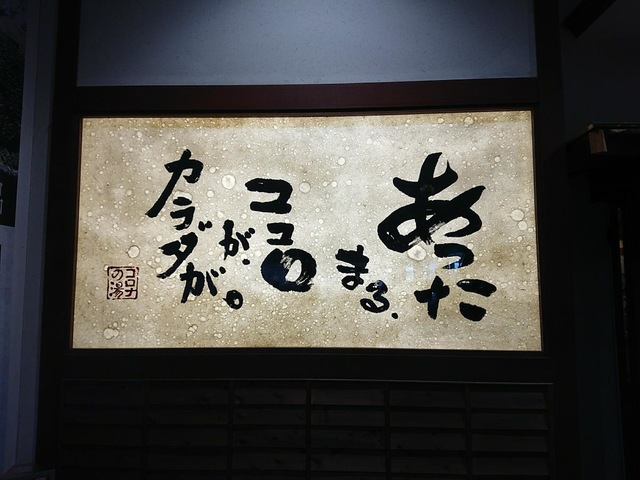 あった
まる。
ココロ
が、
カラダが。
コロナ
の湯